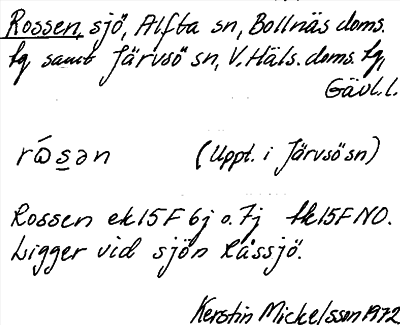 Rossen, sjö, Alfta sn, Bollnäs doms.
lg samt Järvsö sn, V. Häls. doms. lg,
Gävl. l.
rɷ́s̲ən (Uppt. i Järvsö sn)
Rossen ek 15F 6j o. 7j tk 15F NO.
Ligger vid sjön Råssjö.
Kerstin Mickelsson 1972